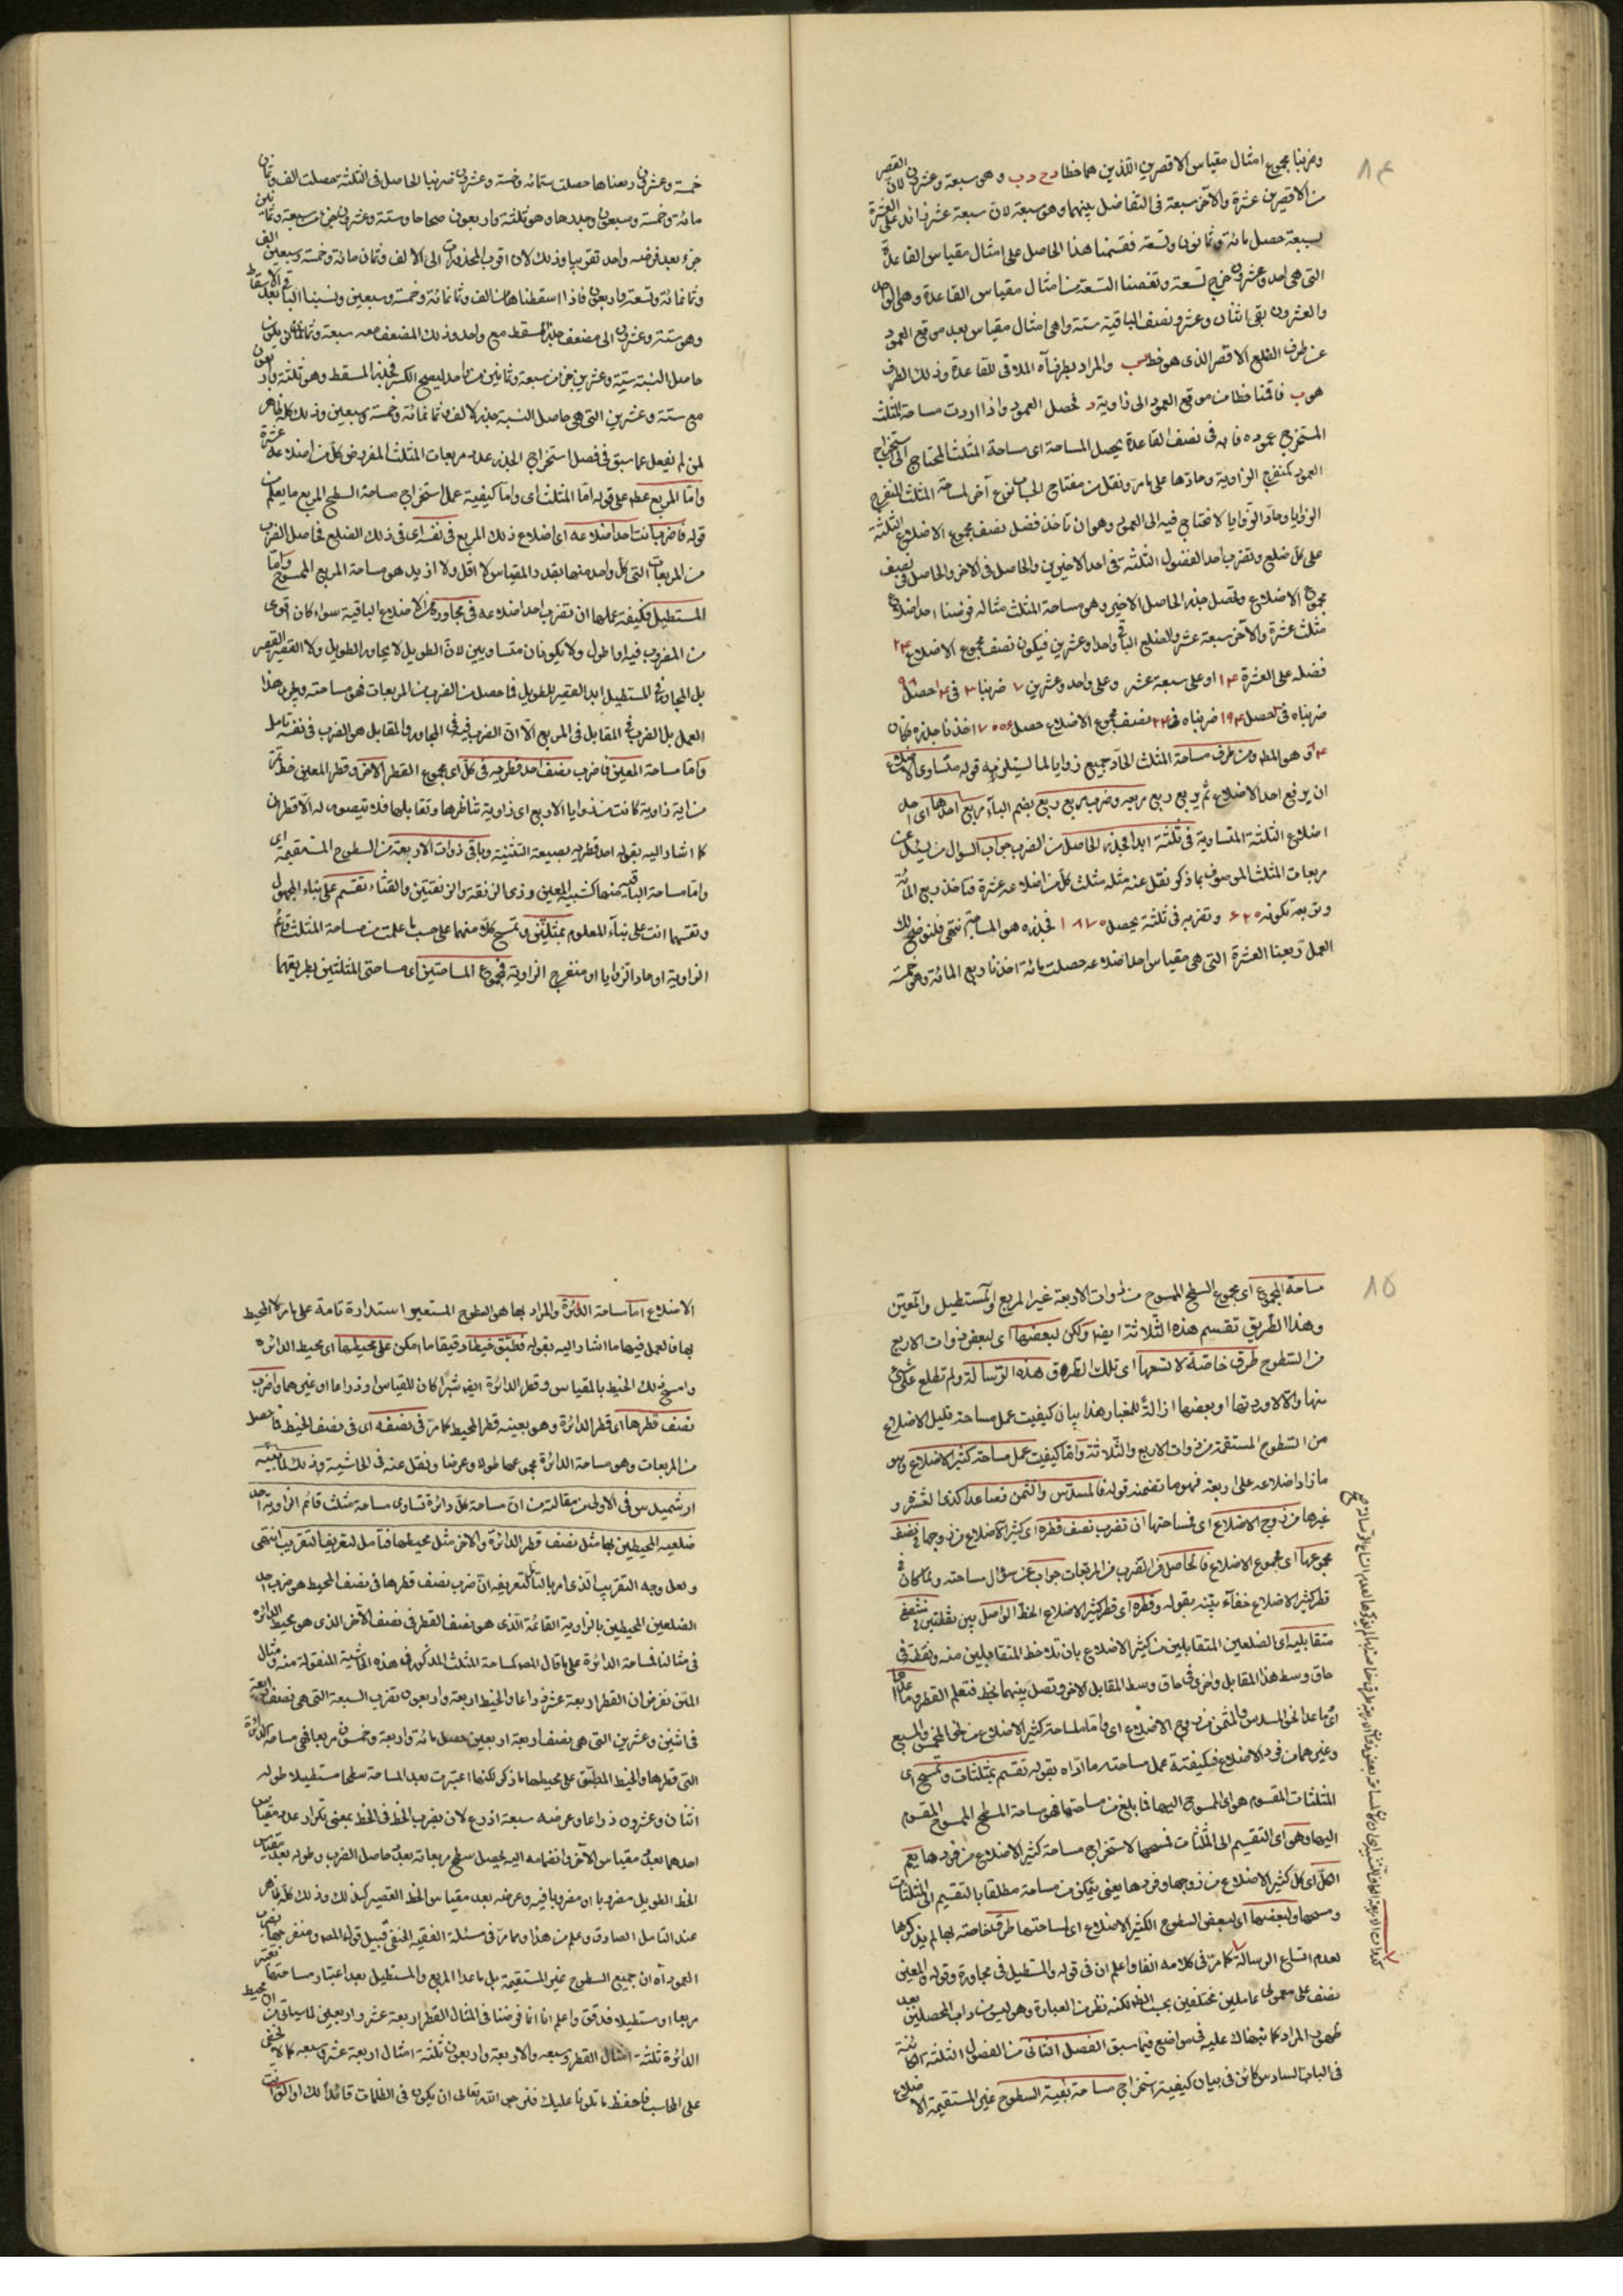 ٨٤
وضربنا مجموع امثال مقياس الاقصرين اللذين هما خطا د ح د ب وهو سبعة وعشرون لان القصر
من الاقصرين عشرة والآخر سبعة في التفاضل بينهما وهو سبعة لان سبعة عشر زائد على العشرة
بسبعة حصل مائة وثمانون وتسعة فقسمنا هذا الحاصل على امثال مقياس القاعدة
التي هي احد وعشرون خرج تسعة ونقصنا التسعة من امثال مقياس القاعدة وهي الواحد
والعشرون بقي اثنان وعشر ونصف الباقية ستة وهي امثال مقياس بعد موقع العمود
عن طرف الضلع الاقصر الذي هو خط والمراد بطرفه الملاقي للقاعدة وذلك الطرف
هو ب فاقمنا خطا من موقع العمود الى زاوية د فحصل العمود واذا اردت مساحة المثلث
المستخرج عموده فاضربه في نصف القاعدة يحصل المساحة اى مساحة المثلث المحتاج الى استخراج
العمود كمنفرج الزاوية وحادها على ما مر ونقل من مفتاح الحساب نوع آخر لمساحة المثلث المنفرج
الزوايا وحاد الزوايا لا نحتاج فيه الى العمود وهو ان تاخذ فضل نصف مجموع الاضلاع الثلثة
على كل ضلع وتضرب احد الفضول الثلثة في احد الاخيرين والحاصل في الاخر والحاصل في نصف
مجموع الاضلاع وتحصل جذر الحاصل الاخير وهو مساحة المثلث مثاله فرضنا احد اضلاع
مثلث عشرة والآخر سبعة عشر والضلع الباقي واحدا وعشرين فيكون نصف مجموع الاضلاع ٢٤
فضله على العشرة ١٤ وعلى سبعة عشر وعلى واحد وعشرين ٧ ضربنا ٣ في ١٤ حصل ٩٨
ضربناه في حصل ٢٩٤ ضربناه في ٢٤ نصف مجموع الاضلاع حصل ٧٠٥٦ اخذنا جذره فكان
٨٤ وهو المطلوب ومن طرف مساحة المثلث الحاد جميع زوايا لما يستلزمه قوله متساوي الاضلاع
ان يربع احد الاضلاع ثم يربع ربع مربعه وضرب مربع ربع بضم الباء مربع احدها اى احد
اضلاع الثلثة المتساوية في ثلثة ابدا فجذر الحاصل من الضرب جواب السوال من يسئل عن
مربعات المثلث الموصوف بما ذكر ونقل عنه مثله مثلث كل من اضلاعه عشرة فناخذ ربع المائة
ونربعه تكون ٦٢٥ ونضربه في ثلثة يحصل ١٨٧٥ فجذره هو المساحة انتهى فلنوضح لك
العمل ربعنا العشرة التي هي مقياس احد اضلاعه حصلت مائة اخذنا ربع المائة وهو خمسة
خمسة وعشرون ربعناها حصلت ستمائة وخمسة وعشرون ضربنا الحاصل في الثلثة حصلت الف وثمان
مائة وخمسة وسبعون وجدرها وهو ثلثة واربعون صحاحا وستة وعشرون جزءا من سبعة وثمانين
جزء بعد فرضه واحد تقريبا وذلك لان اقرب المجذورات الى الالف وثمان مائة وخمسة وسبعين الف
وثمانمائة وتسعة واربعون فاذا اسقطناها من الف وثمانمائة وخمسة وسبعين ونسبنا الباقي بعد الاسقاط
وهو ستة وعشرون الى مضعف جذر المسقط مع واحد وذلك المضعف معه سبعة وثمانون يكون
حاصل النسبة ستة وعشرين جزء من سبعة وثمانين من واحد ليصح الكسر فجذر المسقط وهو ثلثة واربعون
مع ستة وعشرين التي هي حاصل النسبة جذر لالف وثمانمائة وخمسة وسبعين وذلك كله ظاهر
لمن لم يغفل عما سبق في فصل استخراج الجذر عدد مربعات المثلث المفروض كل من اضلاعه عشرة
واما المربع عطف على قوله اما المثلث اى واما كيفية عمل استخراج مساحة السطح المربع ما يعلم من
قوله فاضرب انت احد اضلاعه اى اضلاع ذلك المربع في نفسه اى في ذلك الضلع فحاصل الضرب
من المربعات التي كل واحد منها بقدر المقياس لا اقل ولا ازيد هو مساحة المربع الممسوح واما
المستطيل فكيفية عملها ان تضرب احد اضلاعه في مجاوره من الاضلاع الباقية سواء كان اقوى
من المضروب فيه او اطول ولا يكونان متساويين لان الطويل لا يجاور الطويل ولا القصير القصير
بل المجاور في المستطيل ابدا القصير للطويل فما حصل من الضرب من المربعات فهو مساحته ويجرى هذا
العمل بل الضرب في المقابل في المربع الا ان الضرب فيه في المجاور والمقابل هو الضرب في نفسه تامل
واما مساحة المعين فاضرب نصف احد قطريه في كل اى مجموع القطر الاخر وقطر المعين خط
من اية زاوية كانت من زوايا الاربع اى زاوية تناظرها وتقابلها فلا يتصور له الا قطران
كما اشار اليه بقوله احد قطريه بصيغة التثنية وباقي ذوات الاربعة من السطوح المستقيمة اى
واما مساحة الباقية منها كشبيه المعين وذي الزنقة والزنقتين والقثاء تقسم على بناء المجهول
وتقسمها انت على بناء المعلوم بمثلثين وتمسح كلا منهما على حسب ما علمت من مساحة المثلث قائم
الزاوية او حاد الزوايا او منفرج الزاوية فمجموع المساحتين اى مساحتي المثلثين بطريقهما
٨٥
مساحة المجموع اى مجموع السطح الممسوح من ذوات الاربعة غير المربع والمستطيل والمعين
وهذا الطريق تقسيم هذه الثلاثة ايضا ولكن لبعضها اى لبعض ذوات الاربع
من السطوح طرق خاصة لا تسعها اى تلك الطرق هذه الرسالة ولم نطلع على شئ
منها والا لاوردتها او بعضها ازالة للغبار هذا بيان كيفيت عمل مساحة قليل الاضلاع
من السطوح المستقيمة من ذوات الاربع والثلاثة واما كيفيت عمل مساحة كثير الاضلاع وهو
ما زاد اضلاعه على اربعة فهو ما تضمنه قوله فالمسدس والمثمن فصاعدا كذي العشر و
غيرها من زوج الاضلاع اى فمساحتها ان تضرب نصف قطره اى كثير الاضلاع من زوجها في نصف
مجموعها اى مجموع الاضلاع فالحاصل من الضرب من المربعات جواب عن سؤال مساحته ولما كان في
قطر كثير الاضلاع خفاء بينه بقوله وقطره اى قطر كثير الاضلاع الخط الواصل بين نقطتين منتصفي
متقابليه اى الضلعين المتقابلين من كثير الاضلاع بان تلاحظ المتقابلين منه ونقطة في
حاق وسط هذا المقابل واخرى في حاق وسط المقابل الاخر وتصل بينهما بخط فتعلم القطر وما عداها
اى ما عدا نحو المسدس والمثمن من زوج الاضلاع اى واما مساحة كثير الاضلاع من نحو المخمس والمسبع
وغيرهما من فرد الاضلاع فكيفية عمل مساحته ما ارداه بقوله تقسم بمثلثات وتمسح اى
المثلثات المقسوم هو اى الممسوح اليها فما بلغ من مساحتها فهو مساحة السطح الممسوح المقسوم
اليها وهو اى التقسيم الى المثلثات فمسحها لاستخراج مساحة كثير الاضلاع من فردها يعم
الكل اى كل كثير الاضلاع من زوجها وفردها يعنى يتمكن من مساحة مطلقا بالتقسيم الى المثلثات
ومسحها ولبعضها اى لبعض السطوح الكثير الاضلاع اى لمساحتها طرق خاصة بها لم نذكرها
لعدم اتساع الرسالة كما مر في كلامه انفا واعلم ان في قوله والمستطيل في مجاورة وقوله والمعين
نصف على معمولي عاملين مختلفين بحسب الظاهر لكنه نظر من العبارة وهو ليس من داب المحصلين بعد
ظهور المراد كما نبهناك عليه في مواضع فيما سبق الفصل الثاني من الفصول الثلثة الكائنة
في الباب السادس كائن في بيان كيفية استخراج مساحة بقية السطوح غير المستقيمة الاضلاع
الاضلاع اما مساحة الدائرة والمراد بها هو السطوح المستدير استدارة تامة على ما مر لا المحيط
بها فالعمل فيها ما اشار اليه بقوله فطبق خيطا دقيقا ما امكن على محيطها اى محيط الدائرة
وامسح ذلك الخيط بالمقياس وقطر الدائرة ايضا شبرا كان المقياس او ذراعا او غيرهما واضرب
نصف قطرها اى قطر الدائرة وهو بعينه قطر المحيط كما مر في نصفه اى في نصف الخيط فما حصل
من المربعات وهو مساحة الدائرة مجموعها طولا وعرضا ونقل عنه في الحاشية وذلك لما بينه
ارشميدس في الاولى من مقالته من ان مساحة كل دائرة تساوى مساحة مثلث قائم الزاوية احد
ضلعيه المحيطين بها مثل نصف قطر الدائرة والاخر مثل محيطها فتامل لتعريف التقريب انتهى
ولعل وجه التقريب الذي امر بالتامل لتعريفه ان ضرب نصف قطرها في نصف المحيط هو ضرب احد
الضلعين المحيطين بالزاوية القائمة الذي هو نصف القطر في نصف الآخر الذي هو محيط الدائرة
في مثالنا فمساحة الدائرة على ما قال المص كمساحة المثلث المذكور في هذه الحاشية المنقولة منه ومثال
المتن نفرض ان القطر اربعة عشر ذراعا والخيط اربعة واربعون نضرب السبعة التي هي نصف اربعة
في اثنين وعشرين التي هي نصف اربعة اربعين حصل مائة واربعة وخمسون مربعا فهي مساحة الدائرة
التي قطرها والخيط المطبق على محيطها ما ذكر لكنها اعتبرت بعد المساحة سطحا مستطيلا طوله
اثنان وعشرون ذراعا وعرضه سبعة اذرع لان بضرب الخط في الخط بمعنى تكرار عدد مقياس
احدهما بعدد مقياس الآخر وانضمامه اليه ليحصل سطح مربعاته بعدد حاصل الضرب وطوله بعدد مقياس
الخط الطويل مضروبا او مضروبا فيه وعرضه بعد مقياس الخط القصير كذلك وذلك كله ظاهر
عند التامل الصادق وعلم من هذا ومما مر في مسئلة الفقيه الحنفى قبيل قول المصه ومنفرجها يضرب
العمود آه ان جميع السطوح غير المستقيمة بل ما عدا المربع والمستطيل بعد اعتبار مساحتها تعتبر
مربعا او مستطيلا فدقق واعلم انا انما فرضنا في المثال القطر اربعة عشر واربعين لما سياتي من ان محيط
الدائرة ثلثة امثال القطر وسبعه والاربعة واربعون ثلثة امثال اربعة عشر وسبعه كما لا يخفى
على الحاسب فاحفظ ما تلونا عليك فنرجو الله تعالى ان يكون في الظلمات قائدا لك او الوقت